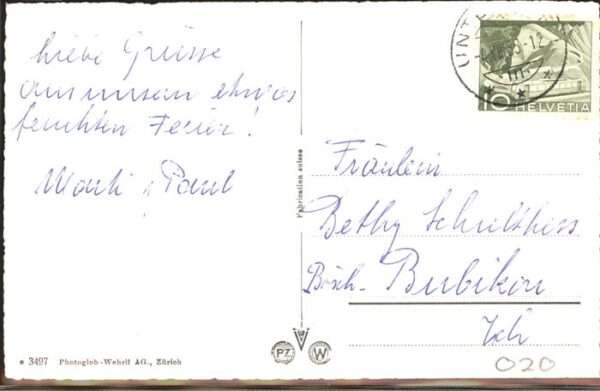 Liebe Grüsse
aus unsern etwas
feuchten Ferien!
Marti & Paul
Fabrication suisse
UNT
10 HELVETIA
Fräulein
Bethy Schulthess
Bösch- Bubikon
Zch
020
PZ W
3497 Photoglob-Wehrli AG., Zürich